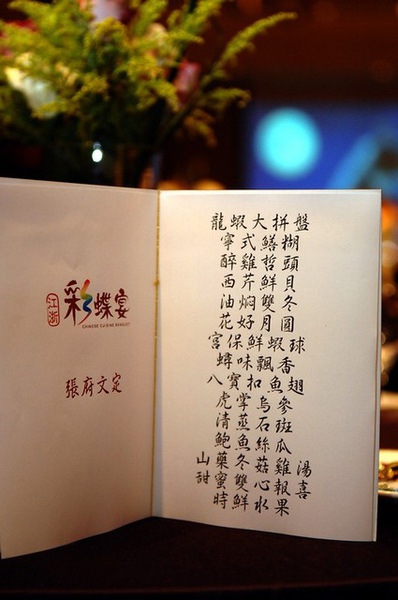 江浙
彩蝶宴
CHINESE CUISINE BANQUET
張府文定
龍蝦大拼盤
寧式鱔糊
醉雞哲頭
西芹鮮貝
油焖雙冬
花好月圓
宮保鮮蝦球
蟳味飄香
八寶扣魚翅
虎掌烏參
清蒸石斑
鮑魚絲瓜
山藥冬菇雞湯
甜蜜雙心報喜
時鮮水果